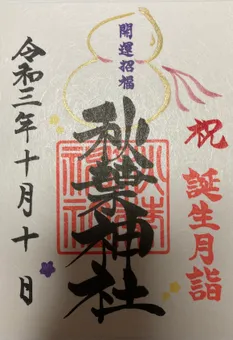 祝
誕生月詣
開運招福
秋葉神社
令和三年十月十日